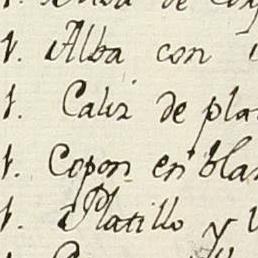 1. Alba con
1. Caliz de pla
1. Copon en blan
1. Platillo y V